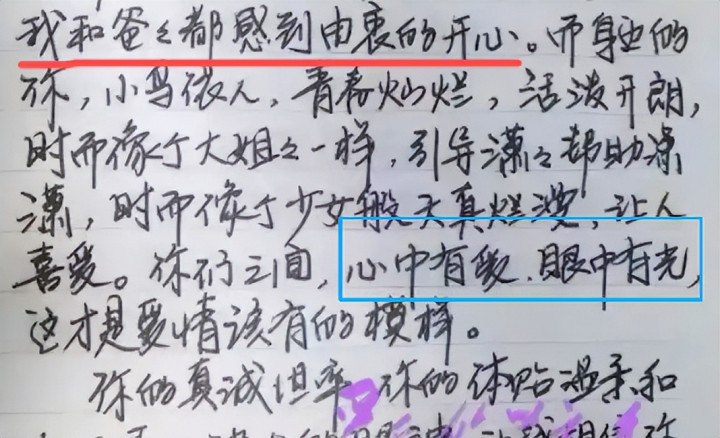 我和爸々都感到由衷的开心。而身边的
你,小鸟依人,青春灿烂,活泼开朗,
时而像个大姐々一样,引导潇々帮助潇
潇,时而像个少女般天真烂漫,让人
喜爱。你们之间,心中有爱.眼中有光,
这才是爱情该有的模样。
你的真诚坦率,你的体贴温柔和